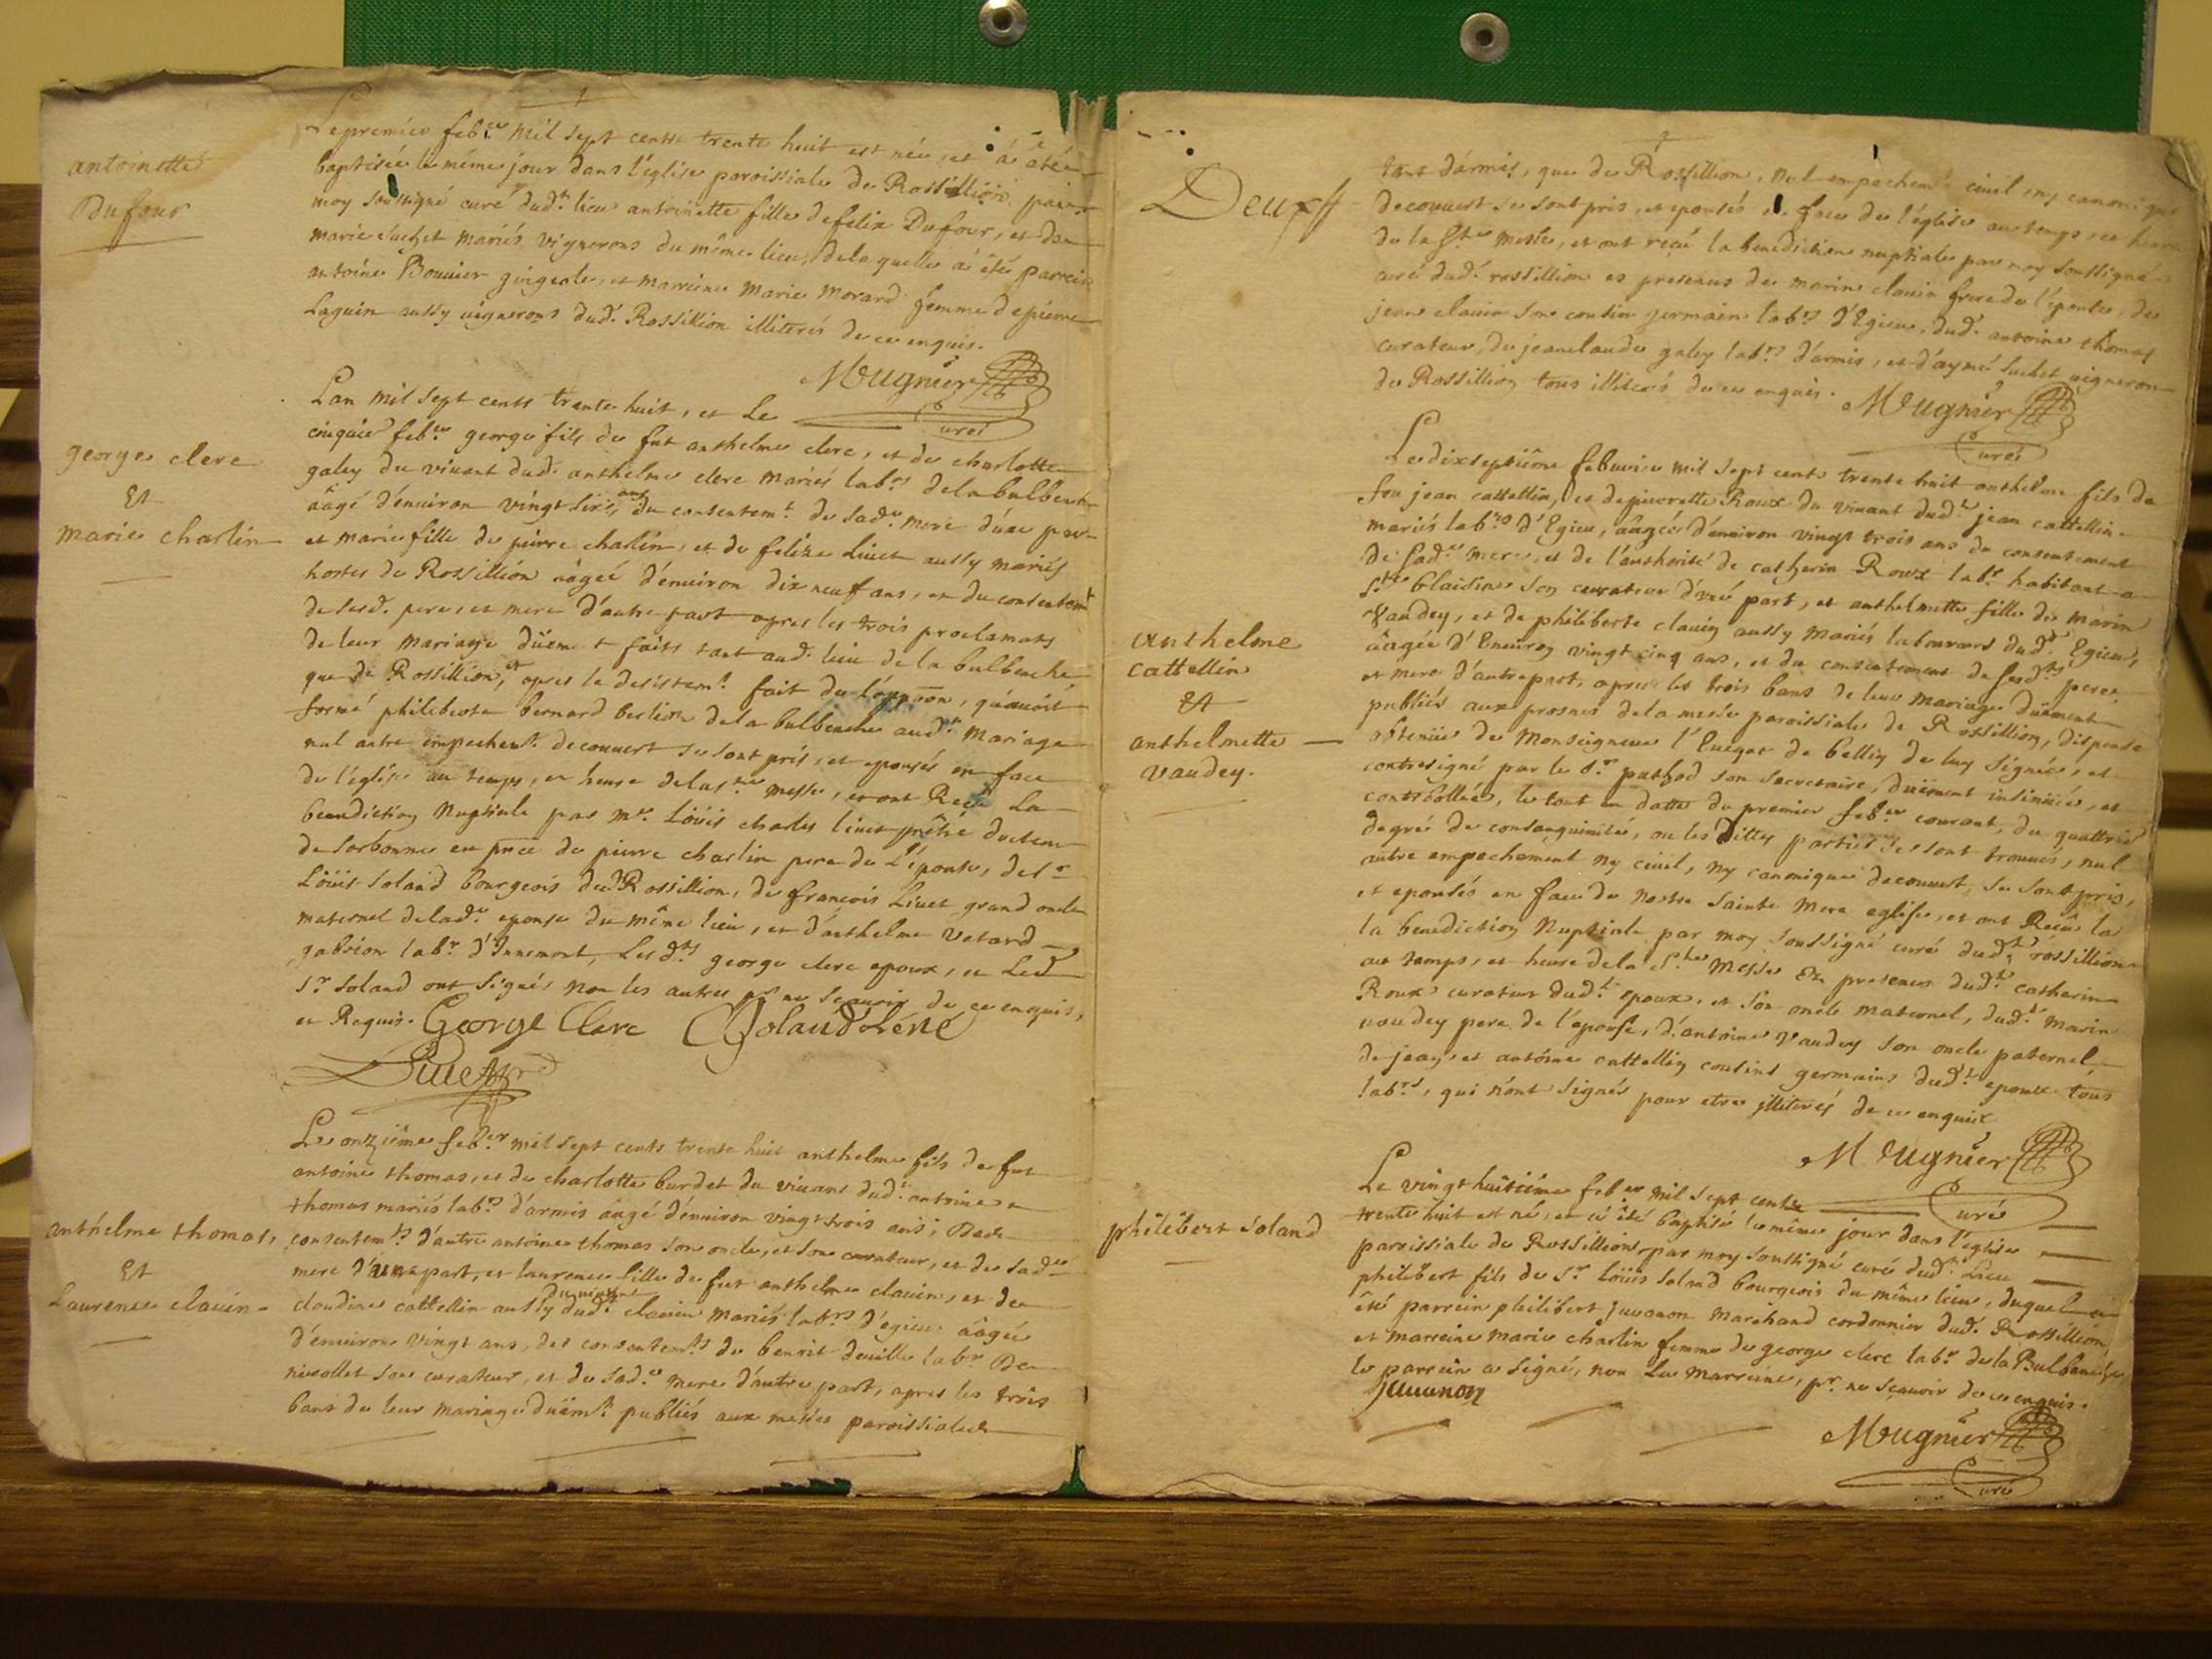 antoinette
Dufour
Le premier feb.er mil sept cents trente huit est née, et à été
baptisée le même jour dans l'église paroissiale de Rossillion par
moy soussigné curé dud.t lieu antoinette fille de felix Dufour, et de
marie suchet mariés vignerons du même lieu, de laquelle à été parrein
antoine Bouvier gingeole, et marreine Marie Morard femme de pierre
Laguin aussy vignerons dud. Rossillion illiterés de ce enquis.
Mugnier
Curé
george clerc
Et
marie charlin
Lan mil sept cents trente huit, et Le
cinquie feb.er george fils de fut anthelme clerc, et de charlotte
galey du vivant dud. anthelme clerc mariés lab.rs de la bulbenche
âagé d'environ vingt six ans, du consentem.t de sad.e mere d'une part
et marie fille de pierre charlin, et de felize Livet aussy mariés
hostes de Rossillion âagée d'environ dix neuf ans, et du consentem.t
de sesd. pere, et mere d'autre part apres les trois proclamats
de leur mariage düem.t faits tant aud. lieu de la bulbenche
que de Rossillion, et apres le desistem.t fait de l'oppoon, qu'avoit
formé philiberte bernard berlion de la bulbenche aud.t Mariage
nul autre empechem.t decouvert se sont pris, et epousés en face
de l'église au temps, et heure de la s.te messe, et ont Reçû La
benediction Nuptiale par m.re Loüis charles livet prêtre docteur
de sorbonne en pnce de pierre charlin pere de L'épouse, de s.r
Loüis Soland bourgeois dud. Rossillion, de françois Livet grand oncle
maternel de lad.e epouse du même lieu, et d'anthelme Vetard
gabrion lab.r d'Innemont, Lesd.ts george clerc epoux, et Led
S.r Soland ont signés non les autres p.r ne sçavoir de ce enquis,
et Requis. George Clerc Soland Léné
Livet
anthelme thomas,
Et
Laurence clavin
Le onziême feb.er mil sept cents trente huit anthelme fils de fut
antoine thomas, et de charlotte burdet du vivant dud. antoine
thomas mariés lab.rs d'armis âagé d'environ vingt trois ans; Des
consentem.ts d'autre antoine thomas son oncle, et son curateur, et de sad.e
mere d'une part, et laurence fille de fut anthelme clavin, et de
claudine cattellin aussy du vivant dud.t clavin mariés lab.rs d'égieu âagée
d'environ vingt ans, des consentem.ts de benoit deville lab.r De
nivollet son curateur, et de sad.e mere d'autre part, apres les trois
bans de leur mariage düem.t publiés aux messes paroissiales
Deux
tant d'armis, que de Rossillion, nul empechem.t civil, ny canonique
decouvert se sont pris, et epousés en face de l'église au temps, et heure
de la s.te messe, et ont reçû la benediction nuptiale par moy soussigné
curé dud. rossillion es presences de marin clavin frere de l'épouse, de
jean clavin son cousin germain lab.rs d'Egieu, dud. antoine thomas
curateur, de jeanclaude galey lab.rs d'armis, et d'aymé suchet vigneron
de Rossillion tous illiterés de ce enquis. Mugnier
Curé
anthelme
cattellin
Et
anthelmette
Vaudey.
Le dixseptiême febuvier mil sept cents trente huit anthelme fils de
feu jean cattellin, et de pierrette Roux du vivant dud.t jean cattellin
mariés lab.rs d'Egieu, âagé d'environ vingt trois ans du consentement
de sad.e mere, et de l'authorité de catherin Roux lab.r habitant a
S.te blaisine son curateur d'une part, et anthelmette fille de marin
Vaudey, et de philiberte clavin aussy mariés laboureurs dud.t Egieu,
âagée d'Environ vingt cinq ans, et du consentement de sesd.ts pere,
et mere d'autre part, apres les trois bans de leur mariage duëment
publiés aux prosnes de la messe paroissiale de Rossillion, dispense
obtenüe de Monseigneur l'Eveque de belley de luy signée, et
contresigné par le s.r puthod son secretaire, duëment insinüée, et
controllée, le tout en datte du premier feb.er courant, du quattrie
degrée de consanguinité, ou les Dittes parties se sont trouvés, nul
autre empechement ny civil, ny canonique decouvert, se sont pris,
et epousés en face de nostre sainte mere eglise, et ont Reçûs la
la benediction Nuptiale par moy soussigné curé dud.t rossillion
au temps, et heure de la S.te Messe En presence dud.t catherin
Roux curateur dud.t epoux, et son oncle maternel, dud.t Marin
vaudey pere de l'epouse, d'antoine vaudey son oncle paternel,
de jean, et antoine cattellin cousins germains dud.t epoux tous
lab.rs, qui n'ont signés pour etre illiterés de ce enquis.
Mugnier
Curé
philibert soland
Le vingt huitiême feb.er mil sept cents
trente huit est né, et à été baptisé le même jour dans l'église
paroissiale de Rossillion, par moy soussigné curé dud. Lieu
philibert fils de s.r Loüis Soland bourgeois du même lieu, duquel a
été parrein philibert juvanon marchand cordonnier dud. Rossillion,
et marreine marie charlin femme de george clerc lab.r de la Bulbenche,
le parrein a signé, non La marreine, p.r ne sçavoir de ce enquis.
Juvanon
Mugnier
Curé